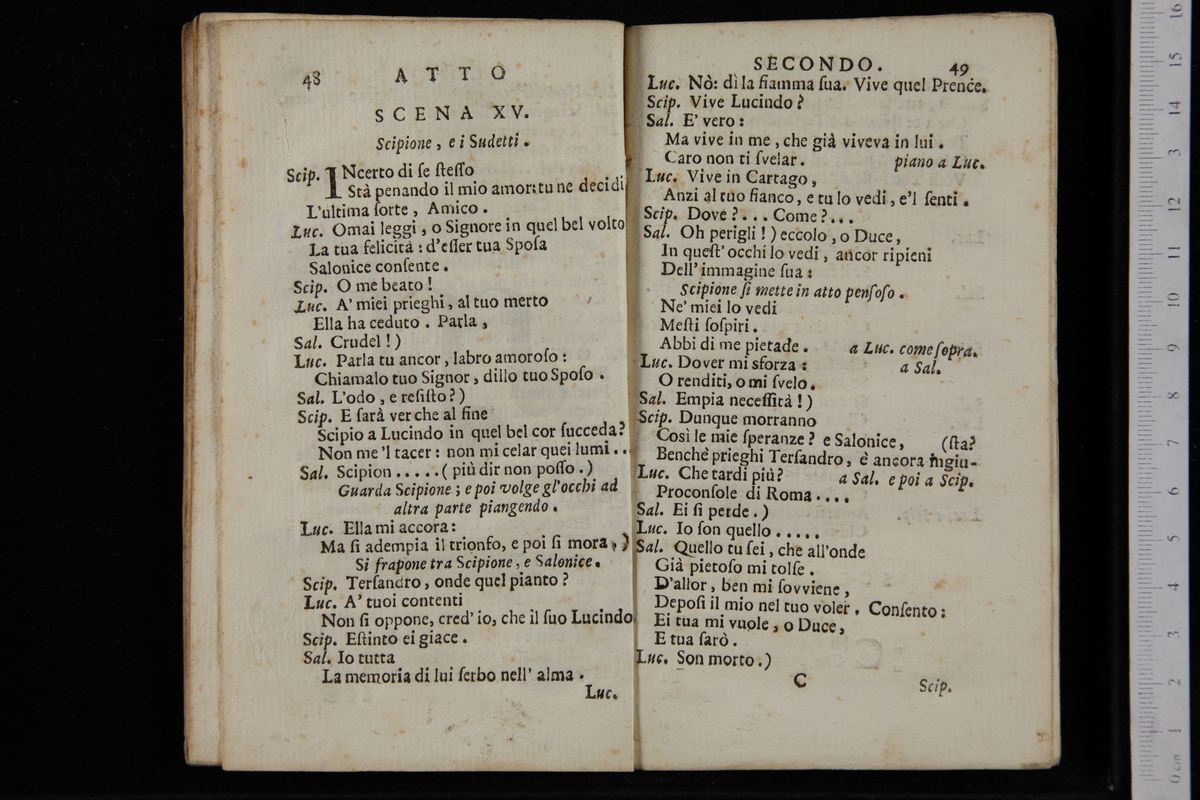 48 ATTO
SCENA XV.
Scipione, e i Sudetti.
Scip. INcerto di ſe ſteſſo
Stà penando il mio amor: tu ne decidi
L'ultima ſorte, Amico.
Luc. Omai leggi, o Signore in quel bel volto
La tua felicità: d'eſſer tua Spoſa
Salonice conſente.
Scip. O me beato!
Luc. A' miei prieghi, al tuo merto
Ella ha ceduto. Parla,
Sal. Crudel!)
Luc. Parla tu ancor, labro amoroſo:
Chiamalo tuo Signor, dillo tuo Spoſo.
Sal. L'odo, e reſiſto?)
Scip. E ſarà ver che al fine
Scipio a Lucindo in quel bel cor ſucceda?
Non me 'l tacer: non mi celar quei lumi..
Sal. Scipion.....(più dir non poſſo.)
Guarda Scipione; e poi volge gl'occhi ad
altra parte piangendo.
Luc. Ella mi accora:
Ma ſi adempia il trionfo, e poi ſi mora,)
Si frapone tra Scipione, e Salonice.
Scip. Terſandro, onde quel pianto?
Luc. A' tuoi contenti
Non ſi oppone, cred' io, che il ſuo Lucindo
Scip. Eſtinto ei giace.
Sal. Io tutta
La memoria di lui ſerbo nell' alma.
Luc.
SECONDO. 49
Luc. Nò: dì la fiamma ſua. Vive quel Prence.
Scip. Vive Lucindo?
Sal. E' vero:
Ma vive in me, che già viveva in lui.
Caro non ti ſvelar. piano a Luc.
Luc. Vive in Cartago,
Anzi al tuo fianco, e tu lo vedi, e'l ſenti.
Scip. Dove?... Come?...
Sal. Oh perigli!) eccolo, o Duce,
In queſt' occhi lo vedi, ancor ripieni
Dell' immagine ſua:
Scipione ſi mette in atto penſoſo.
Ne' miei lo vedi
Meſti ſoſpiri.
Abbi di me pietade. a Luc. come ſopra.
Luc. Dover mi sforza: a Sal.
O renditi, o mi ſvelo.
Sal. Empia neceſſità!)
Scip. Dunque morranno
Così le mie ſperanze? e Salonice, (ſta?
Benchè prieghi Terſandro, è ancora ingiu-
Luc. Che tardi più? a Sal. e poi a Scip.
Proconſole di Roma....
Sal. Ei ſi perde.)
Luc. Io ſon quello.....
Sal. Quello tu ſei, che all'onde
Già pietoſo mi tolſe.
D'allor, ben mi ſovviene,
Depoſi il mio nel tuo voler. Conſento:
Ei tua mi vuole, o Duce,
E tua ſarò.
Luc. Son morto.)
C Scip.